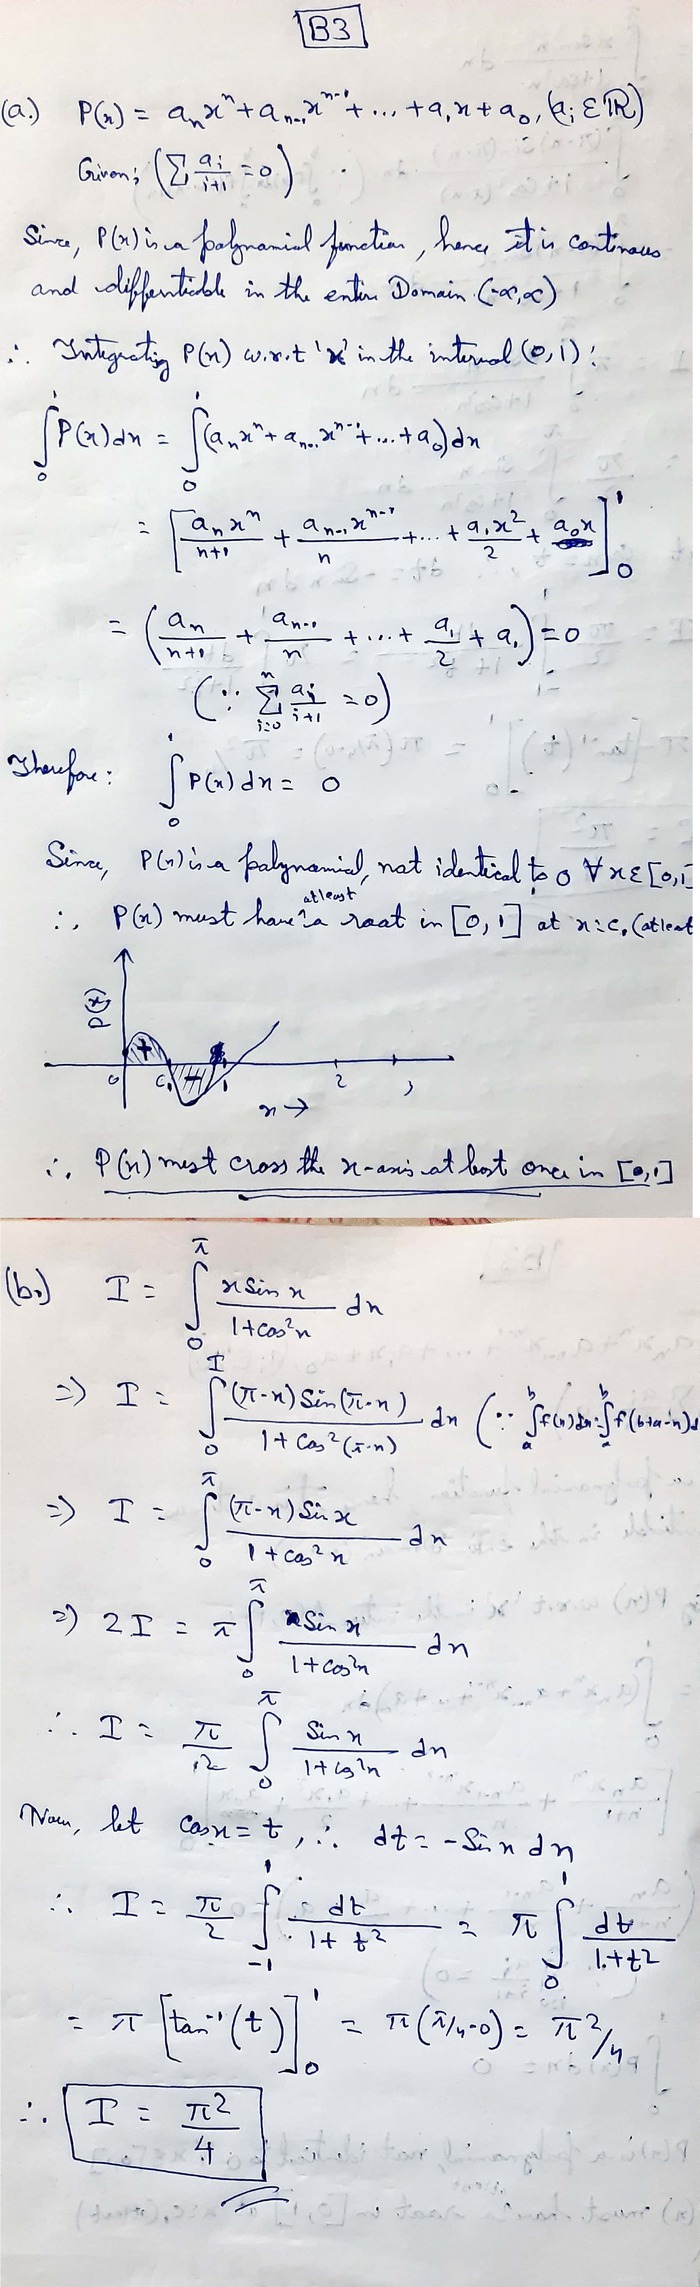 B3
(a.) P(x) = aₙxⁿ + aₙ₋₁xⁿ⁻¹ + ... + a₁x + a₀, (aᵢ ∈ ℝ)
Given; (∑ aᵢ/(i+1) = 0)
Since, P(x) is a polynomial function, hence it is continous
and differtiable in the entire Domain (-∞,∞)
∴ Integrating P(x) w.r.t 'x' in the interval (0,1):
∫₀¹ P(x)dx = ∫₀¹ (aₙxⁿ + aₙ₋₁xⁿ⁻¹ + ... + a₀)dx
= [aₙxⁿ/(n+1) + aₙ₋₁xⁿ⁻¹/n + ... + a₁x²/2 + a₀x]₀¹
= (aₙ/(n+1) + aₙ₋₁/n + ... + a₁/2 + a₁) = 0
(∵ ∑ᵢ₌₀ⁿ aᵢ/(i+1) = 0)
Therefore: ∫₀¹ P(x)dx = 0
Since, P(x) is a polynomial, not identical to 0 ∀ x ∈ [0,1]
∴ P(x) must have atleast a root in [0,1] at x=c. (atleast
P(x)
+ -
0 c. 1 2 3
x →
∴ P(x) must cross the x-axis at least once in [0,1]
(b.) I = ∫₀^π x Sin x/(1+cos²x) dx
⇒ I = ∫₀^π (π-x) Sin(π-x)/(1+Cos²(π-x)) dx (∵ ∫ₐᵇ f(x)dx = ∫ₐᵇ f(b+a-x)d
⇒ I = ∫₀^π (π-x) Sin x/(1+cos²x) dx
⇒ 2I = π ∫₀^π Sin x/(1+cos²x) dx
∴ I = π/2 ∫₀^π Sin x/(1+cos²x) dx
Now, let cos x = t, ∴ dt = -Sin x dx
∴ I = π/2 ∫₋₁¹ dt/(1+t²) = π ∫₀¹ dt/(1+t²)
= π [tan⁻¹(t)]₀¹ = π(π/4-0) = π²/4
∴ I = π²/4